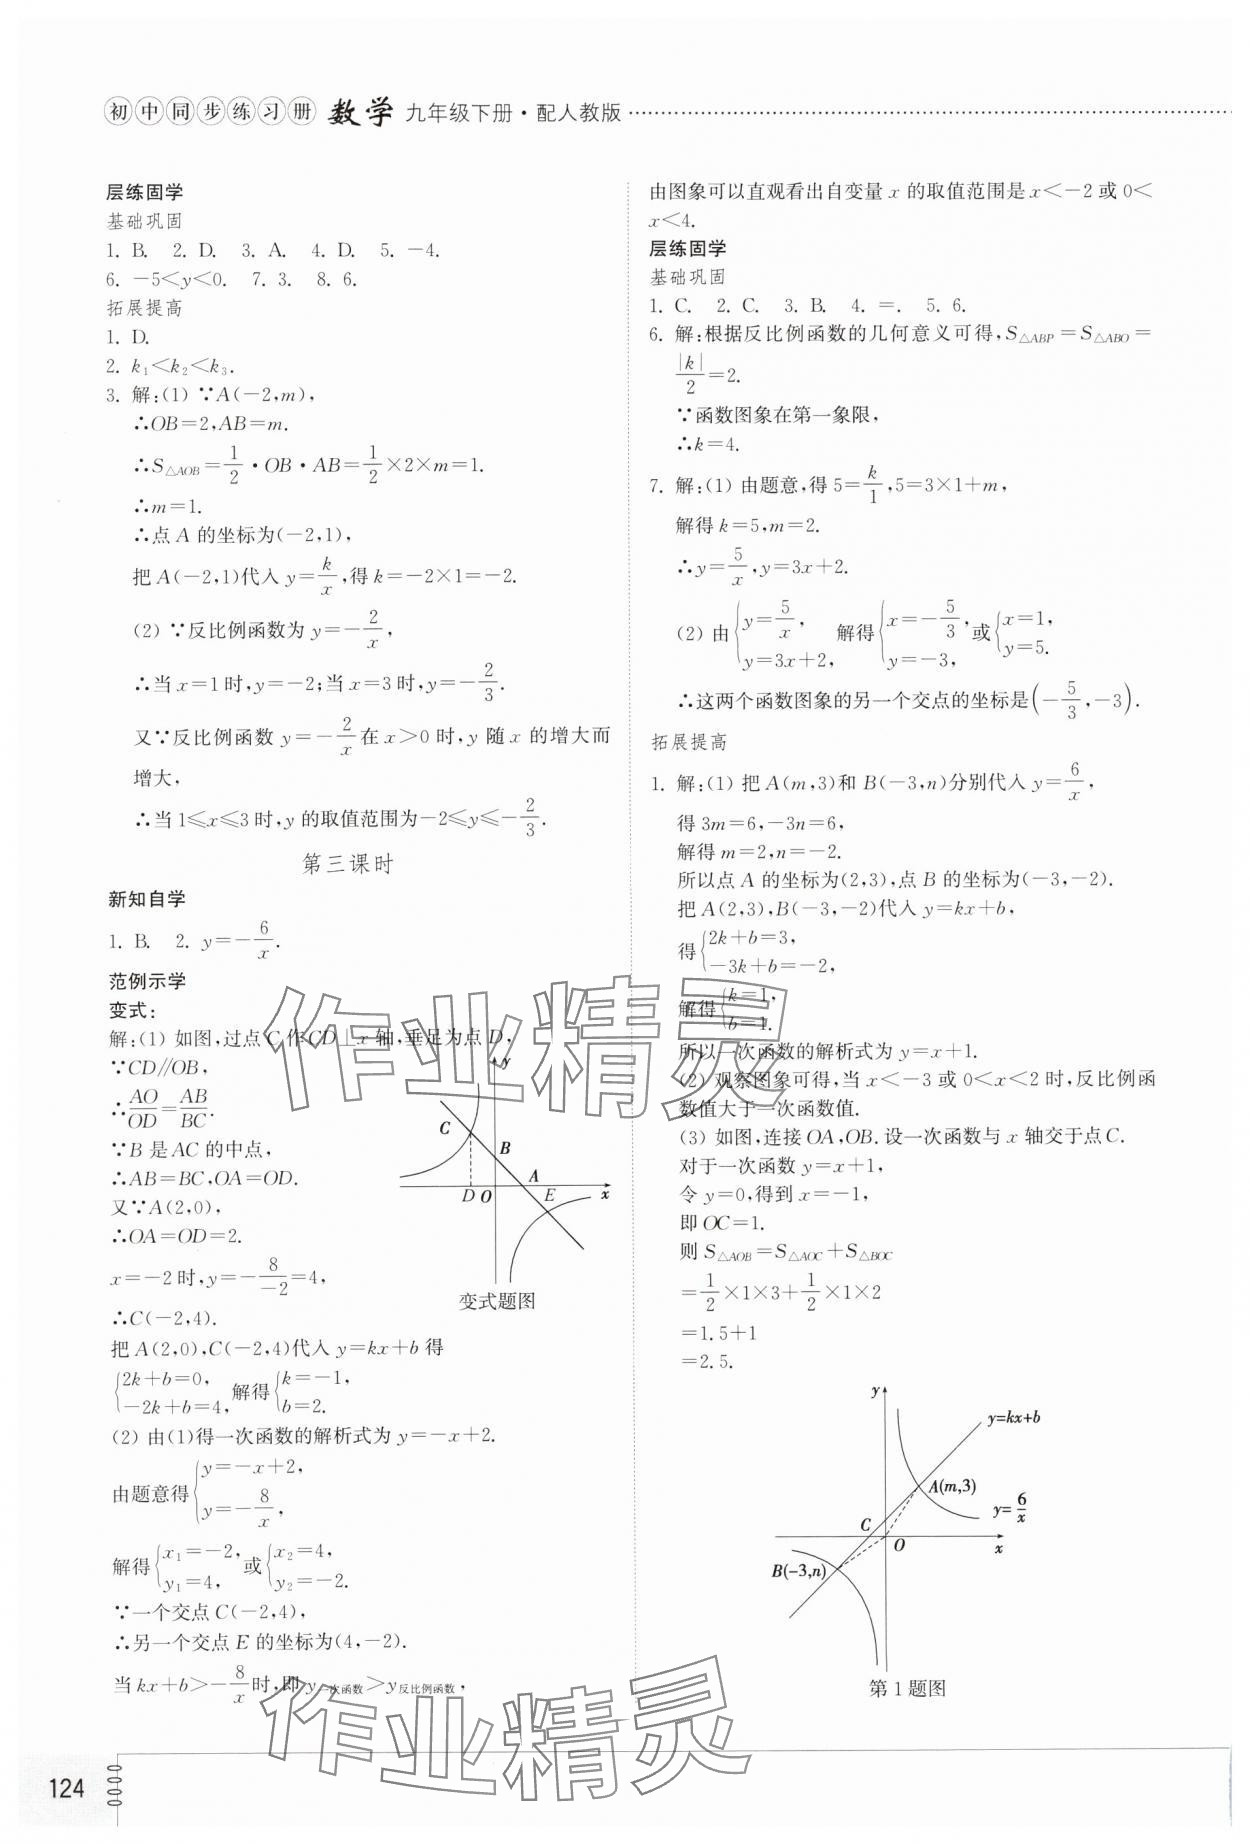 初中同步练习册 数学 九年级下册·配人教版
层练固学
基础巩固
1. B. 2. D. 3. A. 4. D. 5. －4.
6. －5＜y＜0. 7. 3. 8. 6.
拓展提高
1. D.
2. k₁＜k₂＜k₃.
3. 解:(1) ∵A(－2,m),
∴OB＝2,AB＝m.
∴S△AOB＝1/2·OB·AB＝1/2×2×m＝1.
∴m＝1.
∴点 A 的坐标为(－2,1),
把 A(－2,1)代入 y＝k/x,得 k＝－2×1＝－2.
(2) ∵反比例函数为 y＝－2/x,
∴当 x＝1 时,y＝－2;当 x＝3 时,y＝－2/3.
又∵反比例函数 y＝－2/x 在 x＞0 时,y 随 x 的增大而
增大,
∴当 1≤x≤3 时,y 的取值范围为－2≤y≤－2/3.
第三课时
新知自学
1. B. 2. y＝－6/x.
范例示学
变式:
解:(1) 如图,过点 C 作 CD⊥x 轴,垂足为点 D,
∵CD∥OB,
∴AO/OD＝AB/BC.
∵B 是 AC 的中点,
∴AB＝BC,OA＝OD.
又∵A(2,0),
∴OA＝OD＝2.
x＝－2 时,y＝－8/－2＝4,
∴C(－2,4).
y
C
B
A
D O
E
x
变式题图
把 A(2,0),C(－2,4)代入 y＝kx＋b 得
{2k＋b＝0, －2k＋b＝4, 解得{k＝－1, b＝2.
(2) 由(1)得一次函数的解析式为 y＝－x＋2.
由题意得{y＝－x＋2, y＝－8/x,
解得{x₁＝－2, y₁＝4, 或{x₂＝4, y₂＝－2.
∵一个交点 C(－2,4),
∴另一个交点 E 的坐标为(4,－2).
当 kx＋b＞－8/x 时,即 y一次函数＞y反比例函数,
由图象可以直观看出自变量 x 的取值范围是 x＜－2 或 0＜
x＜4.
层练固学
基础巩固
1. C. 2. C. 3. B. 4. ＝. 5. 6.
6. 解:根据反比例函数的几何意义可得,S△ABP＝S△ABO＝
|k|/2＝2.
∵函数图象在第一象限,
∴k＝4.
7. 解:(1) 由题意,得 5＝k/1,5＝3×1＋m,
解得 k＝5,m＝2.
∴y＝5/x,y＝3x＋2.
(2) 由{y＝5/x, y＝3x＋2, 解得{x＝－5/3, y＝－3, 或{x＝1, y＝5.
∴这两个函数图象的另一个交点的坐标是(－5/3,－3).
拓展提高
1. 解:(1) 把 A(m,3)和 B(－3,n)分别代入 y＝6/x,
得 3m＝6,－3n＝6,
解得 m＝2,n＝－2.
所以点 A 的坐标为(2,3),点 B 的坐标为(－3,－2).
把 A(2,3),B(－3,－2)代入 y＝kx＋b,
得{2k＋b＝3, －3k＋b＝－2,
解得{k＝1, b＝1.
所以一次函数的解析式为 y＝x＋1.
(2) 观察图象可得,当 x＜－3 或 0＜x＜2 时,反比例函
数值大于一次函数值.
(3) 如图,连接 OA,OB.设一次函数与 x 轴交于点 C.
对于一次函数 y＝x＋1,
令 y＝0,得到 x＝－1,
即 OC＝1.
则 S△AOB＝S△AOC＋S△BOC
＝1/2×1×3＋1/2×1×2
＝1.5＋1
＝2.5.
y
y=kx+b
A(m,3)
y=6/x
C
O
x
B(-3,n)
第 1 题图
作业精灵
作业精灵
124